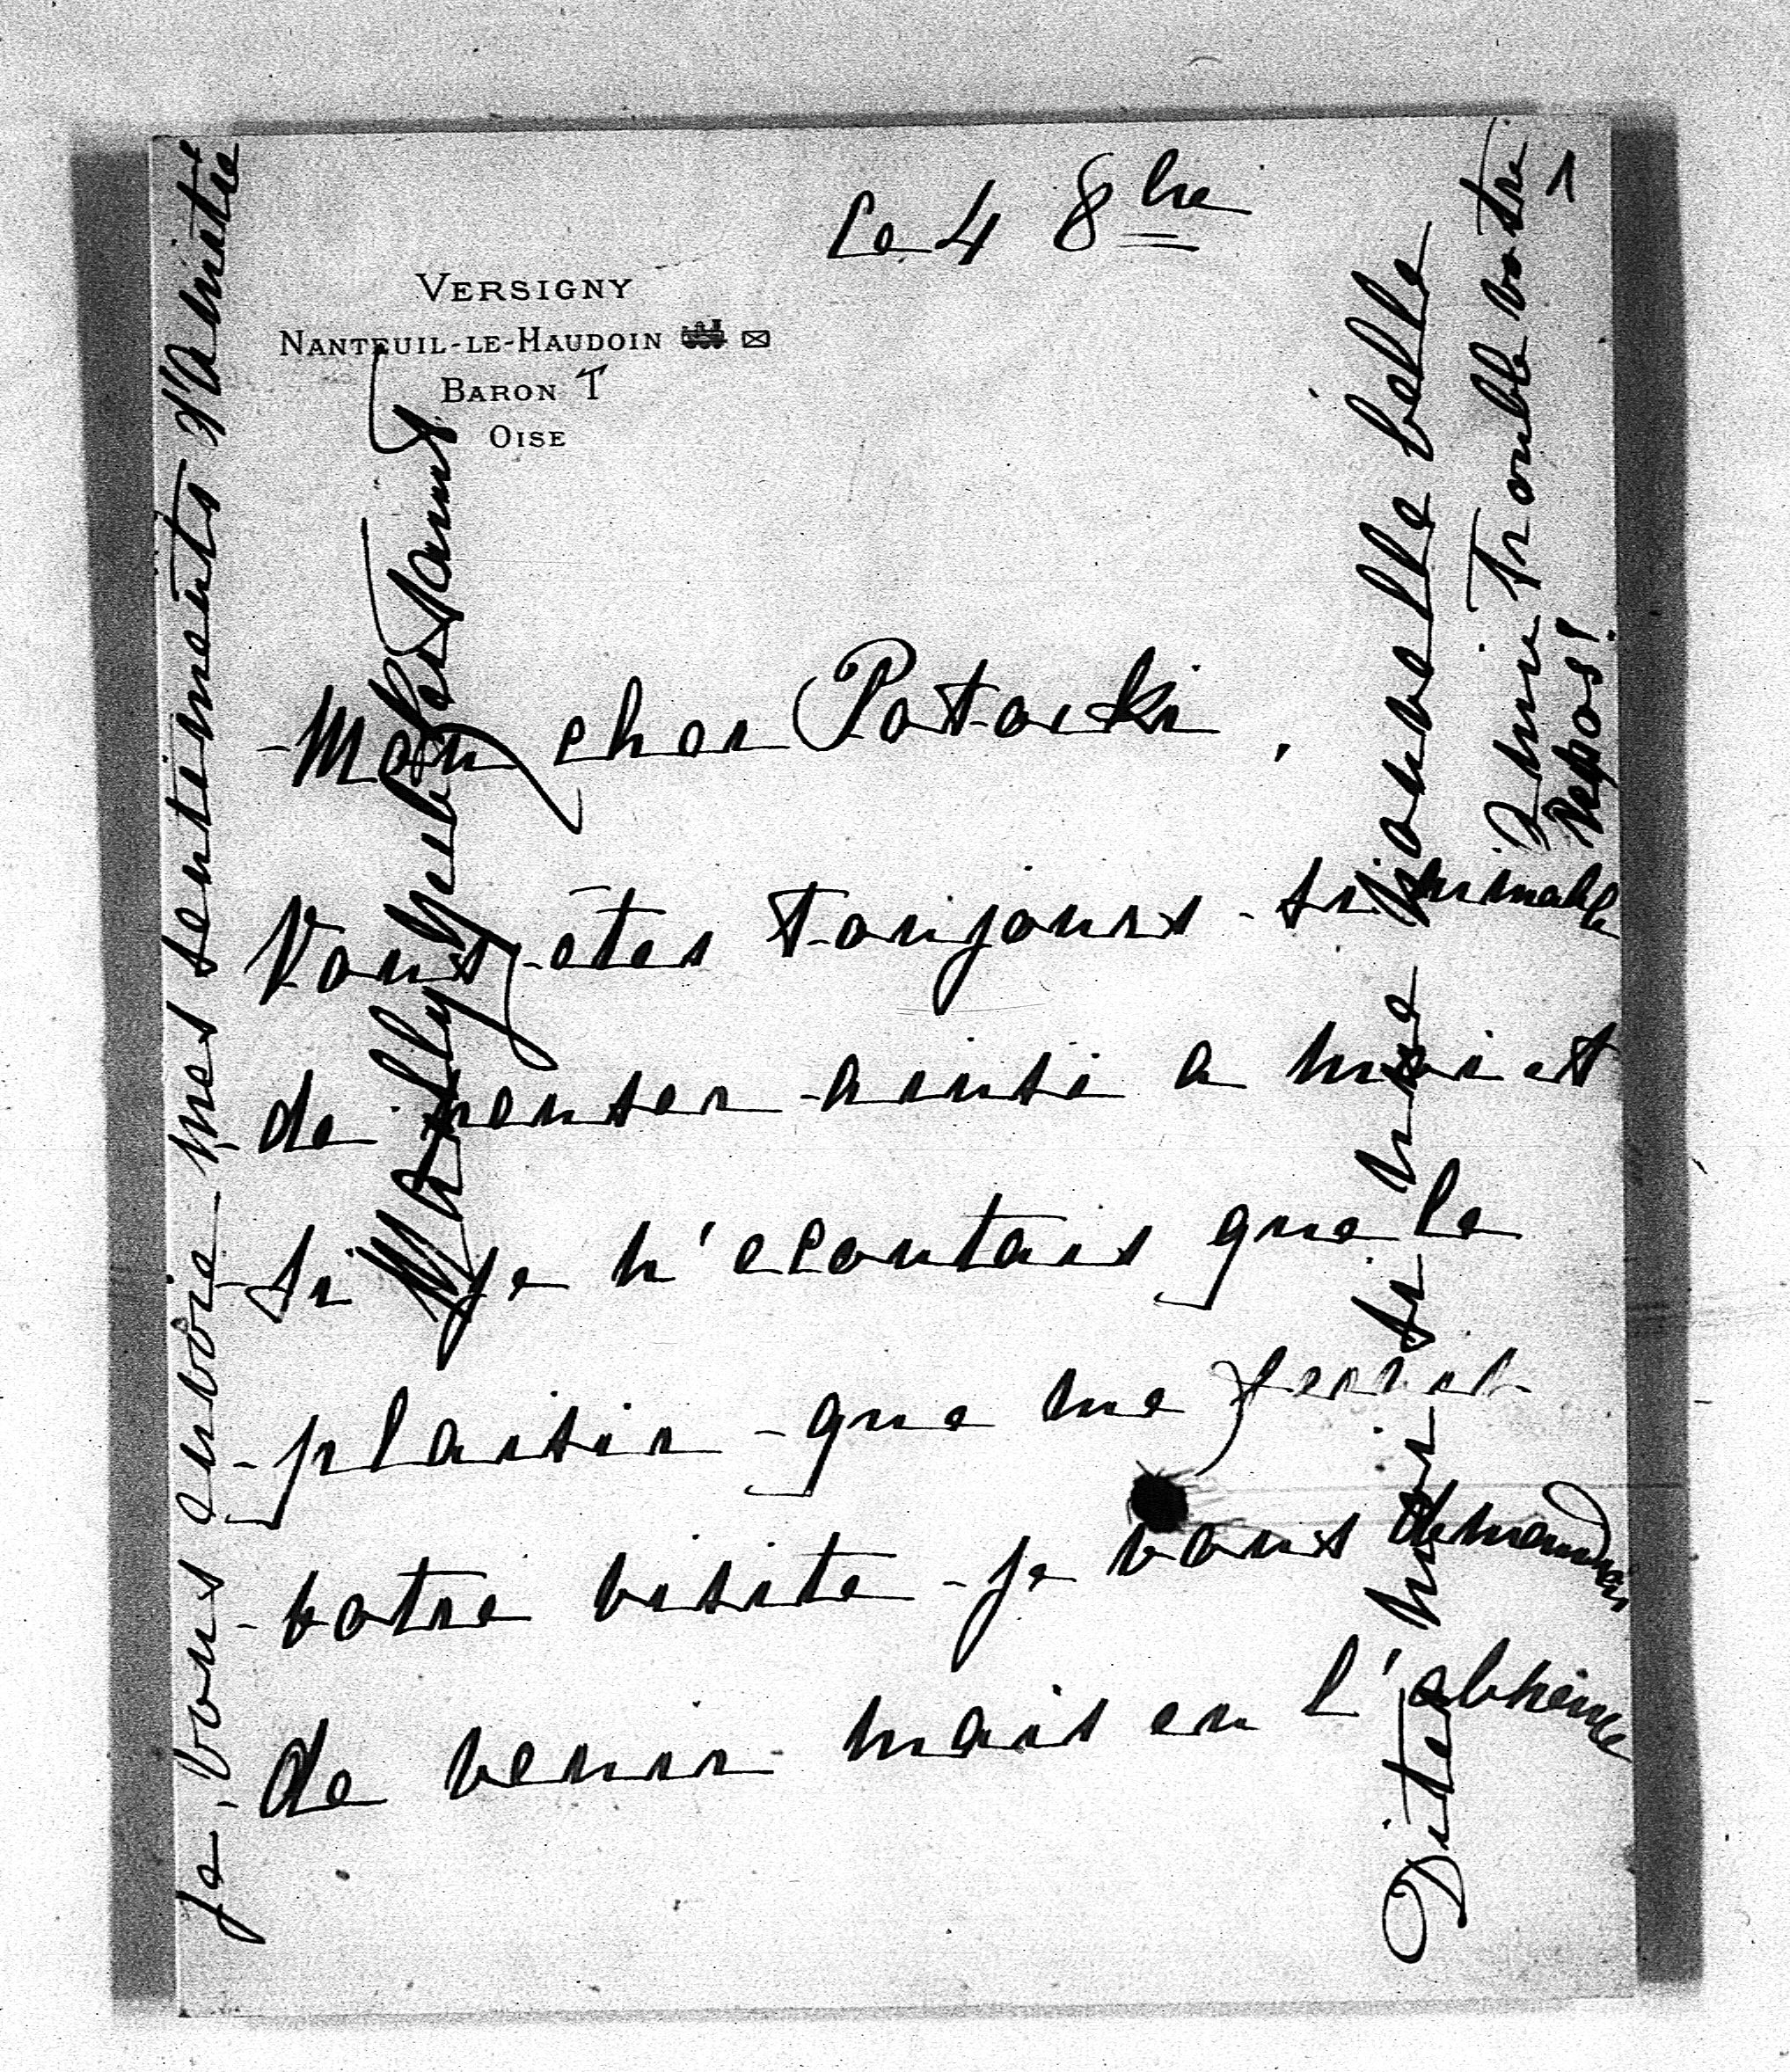 Le 4 8bre
VERSIGNY
NANTEUIL-LE-HAUDOIN
BARON T
OISE
Mon cher Potocki,
Vous êtes toujours si aimable
de penser ainsi a moi et
si je n'ecoutais que le
plaisir que me ferait
votre visite je vous demanderai
de venir mais en l'absence
Dites moi si une nouvelle belle
Amie trouble votre
repos!
je vous envoie mes sentiments d'Amitié
1